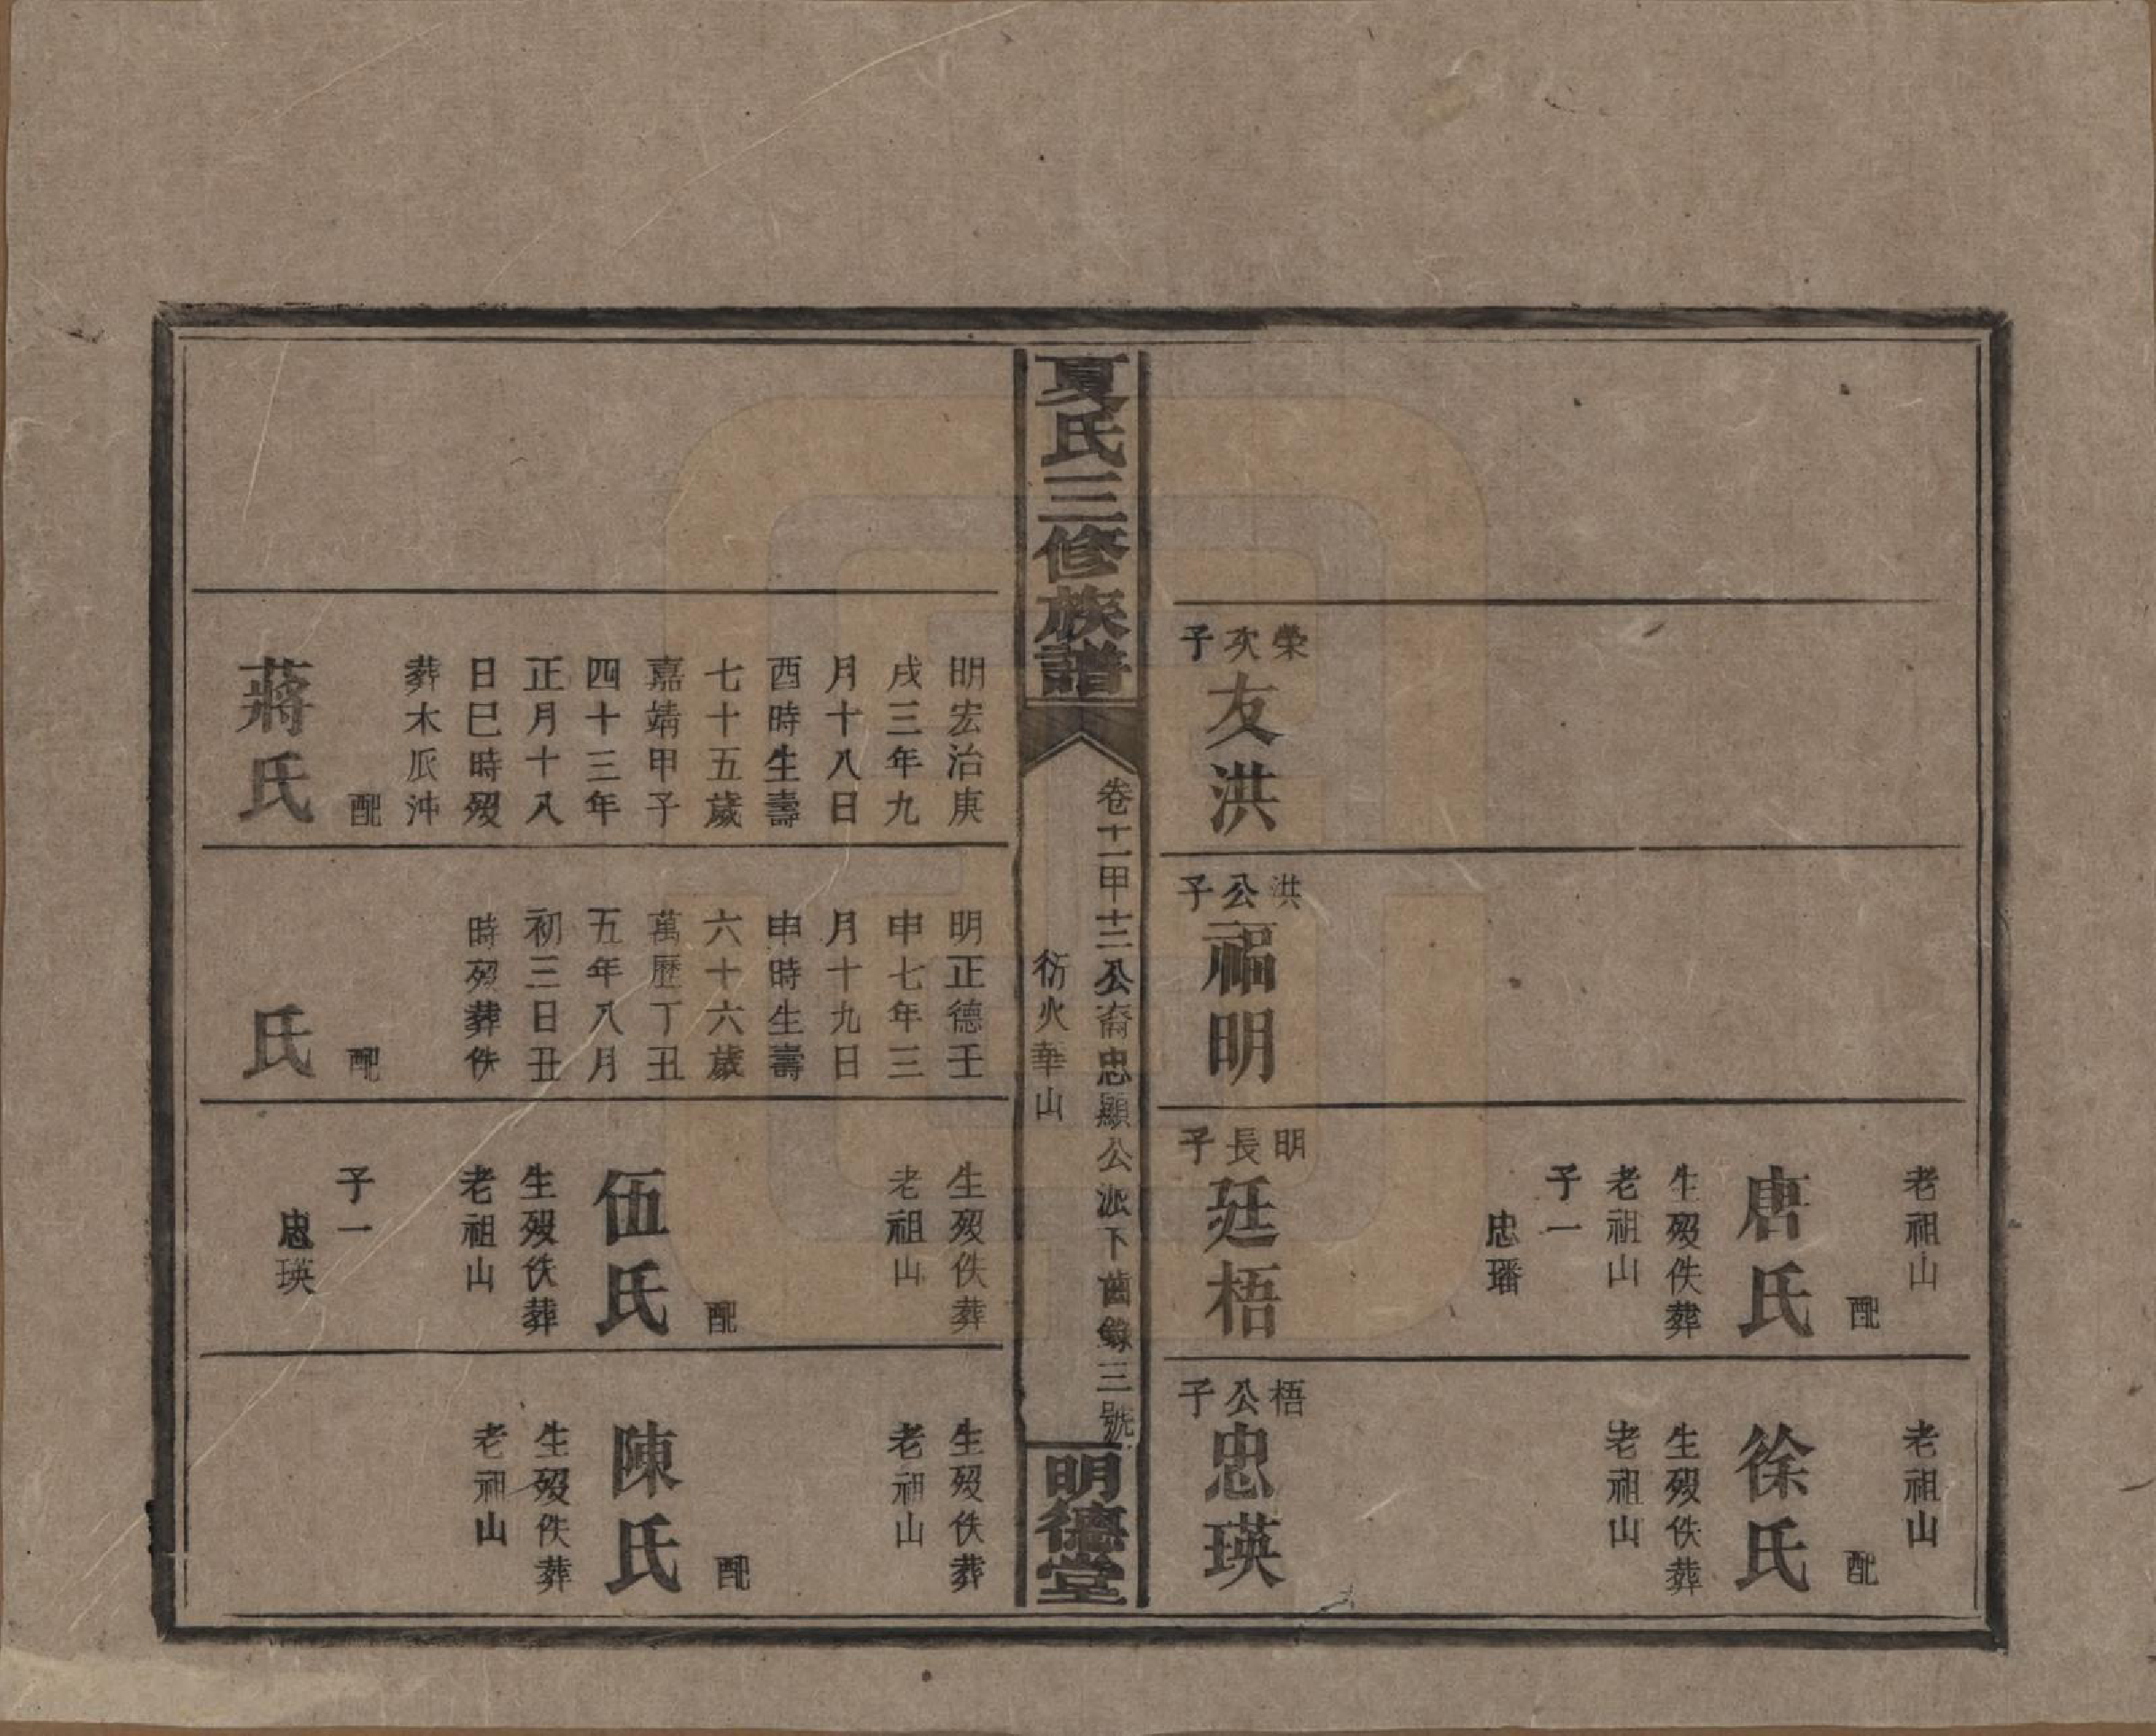 老祖山
配
唐氏
生歿佚葬
老祖山
子一
忠璠
老祖山
配
徐氏
生歿佚葬
老祖山
榮次子
友洪
洪公子
福明
明長子
廷梧
梧公子
忠瑛
夏氏三修族譜
卷十一甲十三公裔忠顯公派下齒錄三號
衍火華山
明德堂
明宏治庚
戌三年九
月十八日
酉時生壽
七十五歲
嘉靖甲子
四十三年
正月十八
日巳時歿
葬木𠂢沖
配
蔣氏
明正德壬
申七年三
月十九日
申時生壽
六十六歲
萬歷丁丑
五年八月
初三日丑
時歿葬佚
配
氏
生歿佚葬
老祖山
配
伍氏
生歿佚葬
老祖山
子一
忠瑛
生歿佚葬
老祖山
配
陳氏
生歿佚葬
老祖山